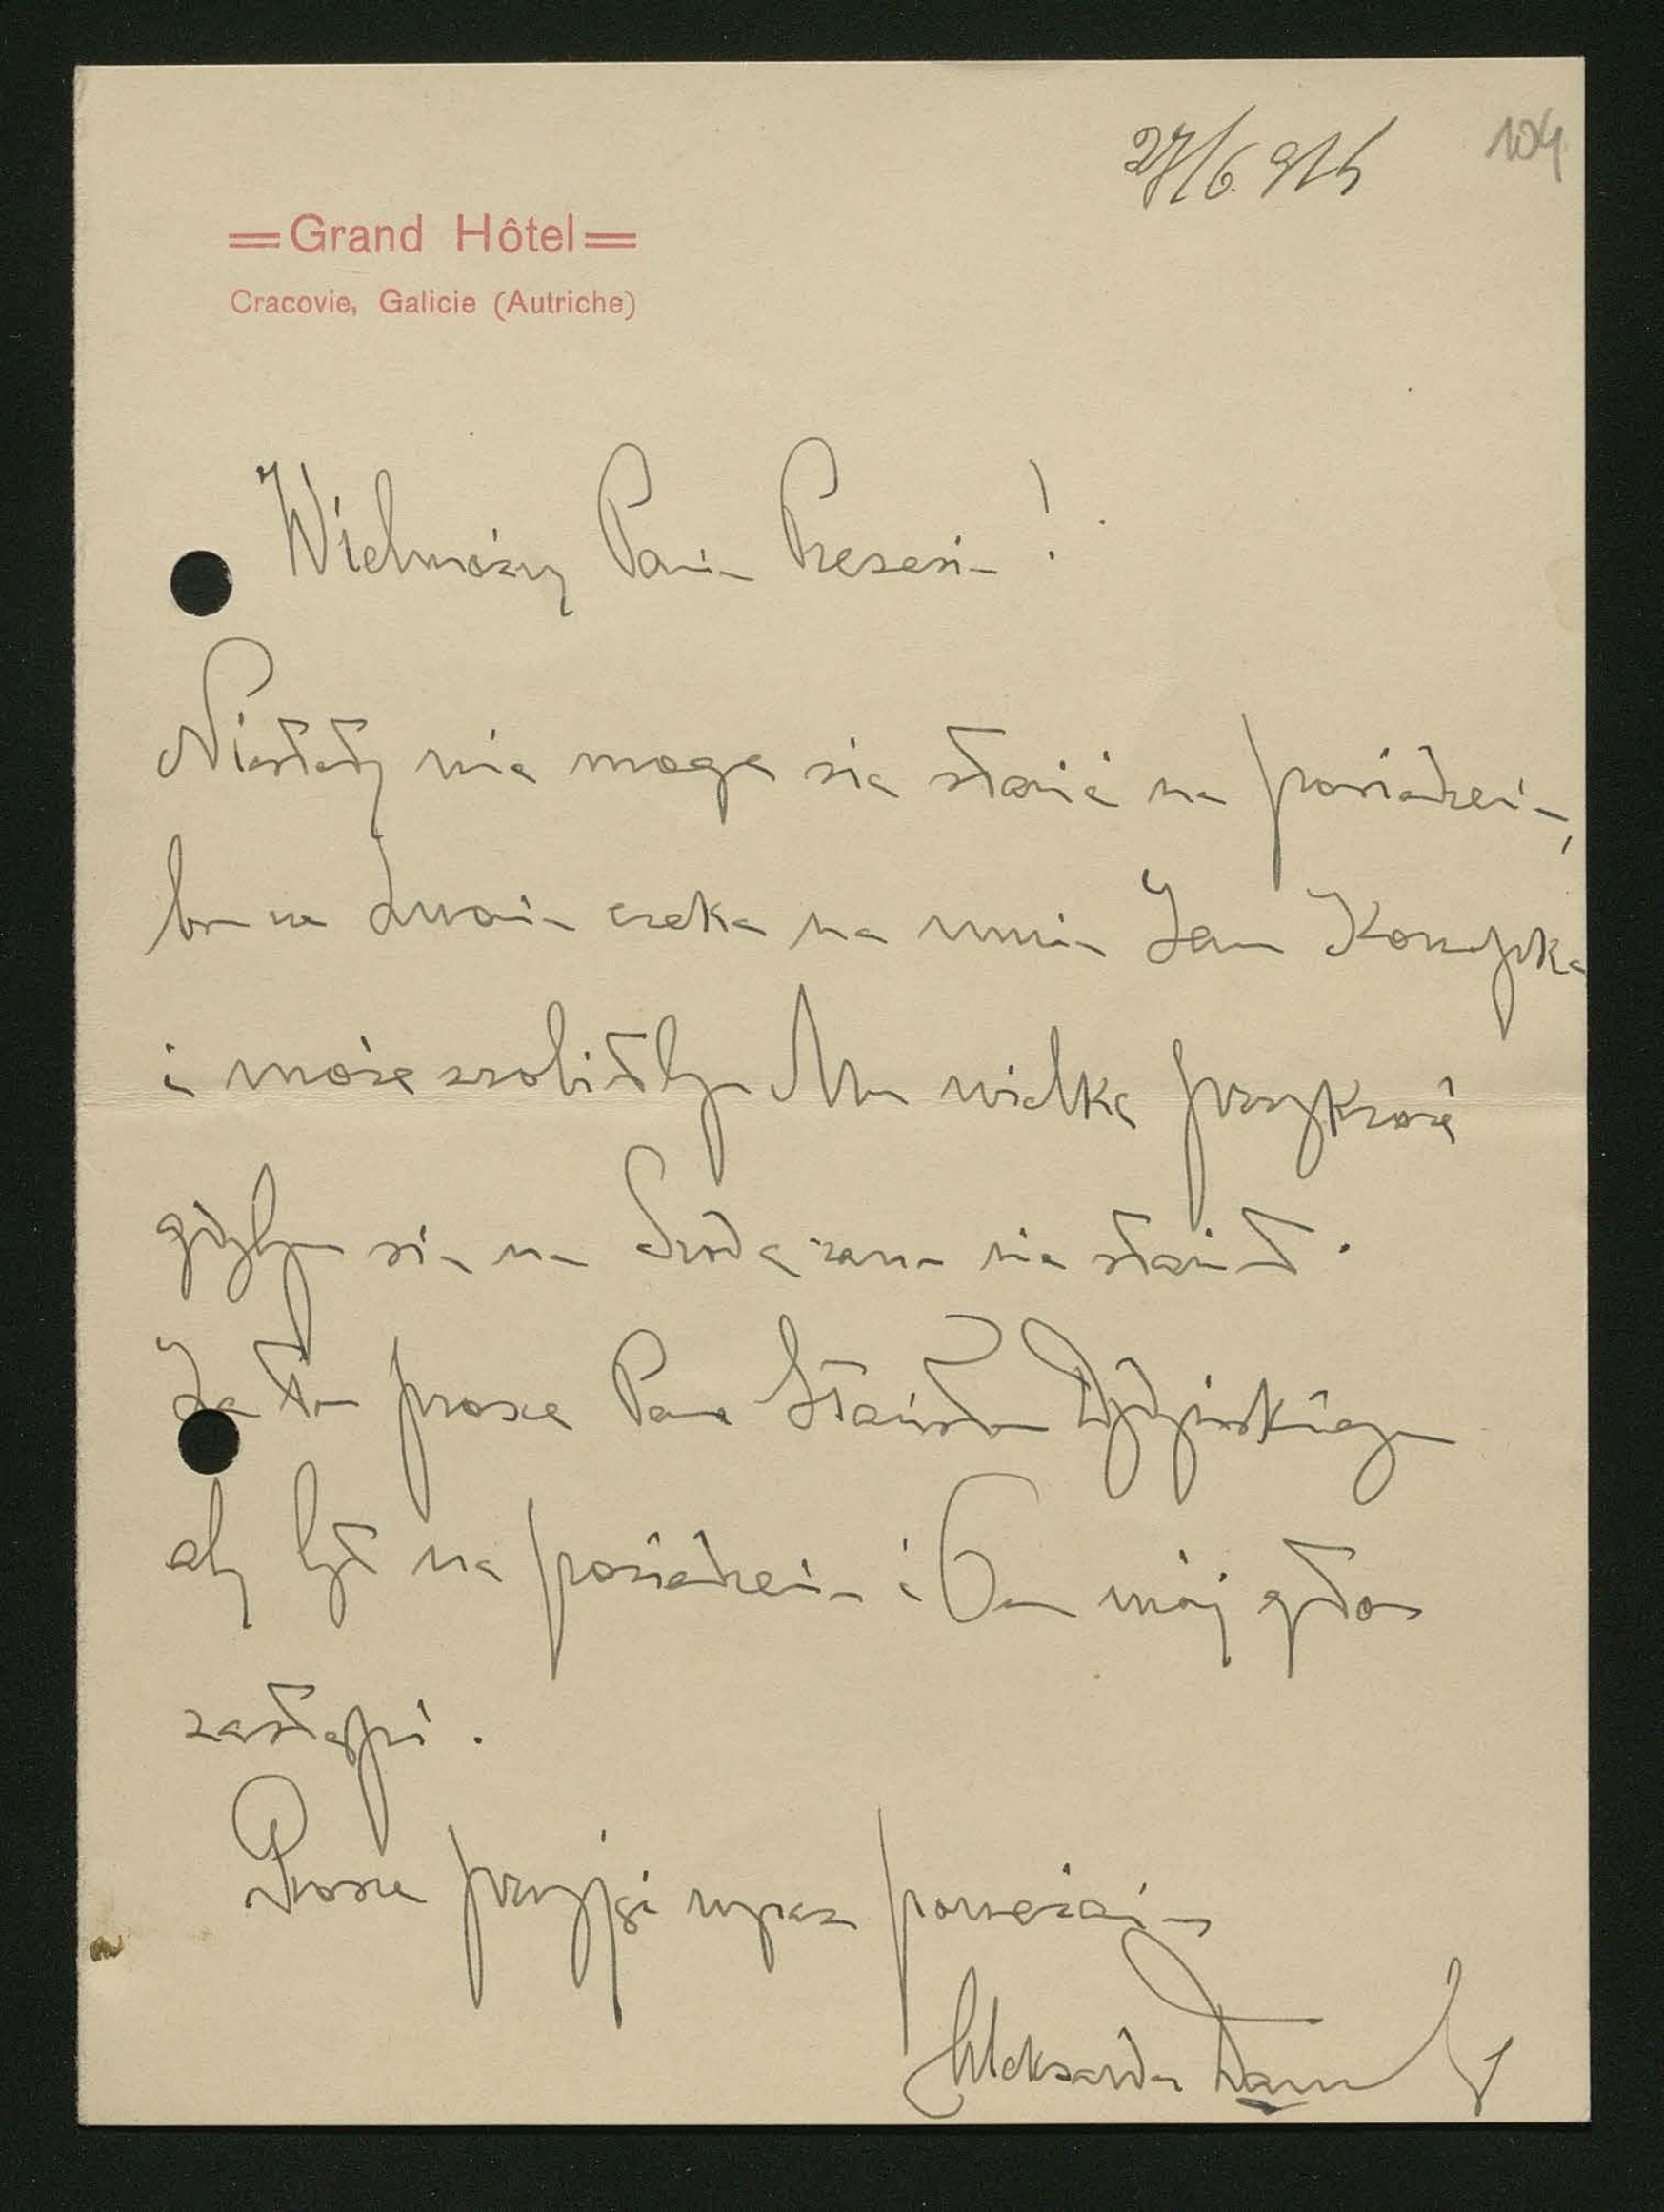 27/6. 915
104
Grand Hôtel
Cracovie, Galicie (Autriche)
Wielmożny Panie Prezesie!
Niestety nie mogę się stawić na posiedzenie,
bo na dworcu czeka na mnie Jan Konopka
i może zrobiłbym Mu wielką przykrość
gdybym się na się nie stawił.
Za to proszę Pana Stanisława
aby był na posiedzeniu i On mój głos
zastąpi.
Proszę przyjąć wyraz poważania
Aleksander